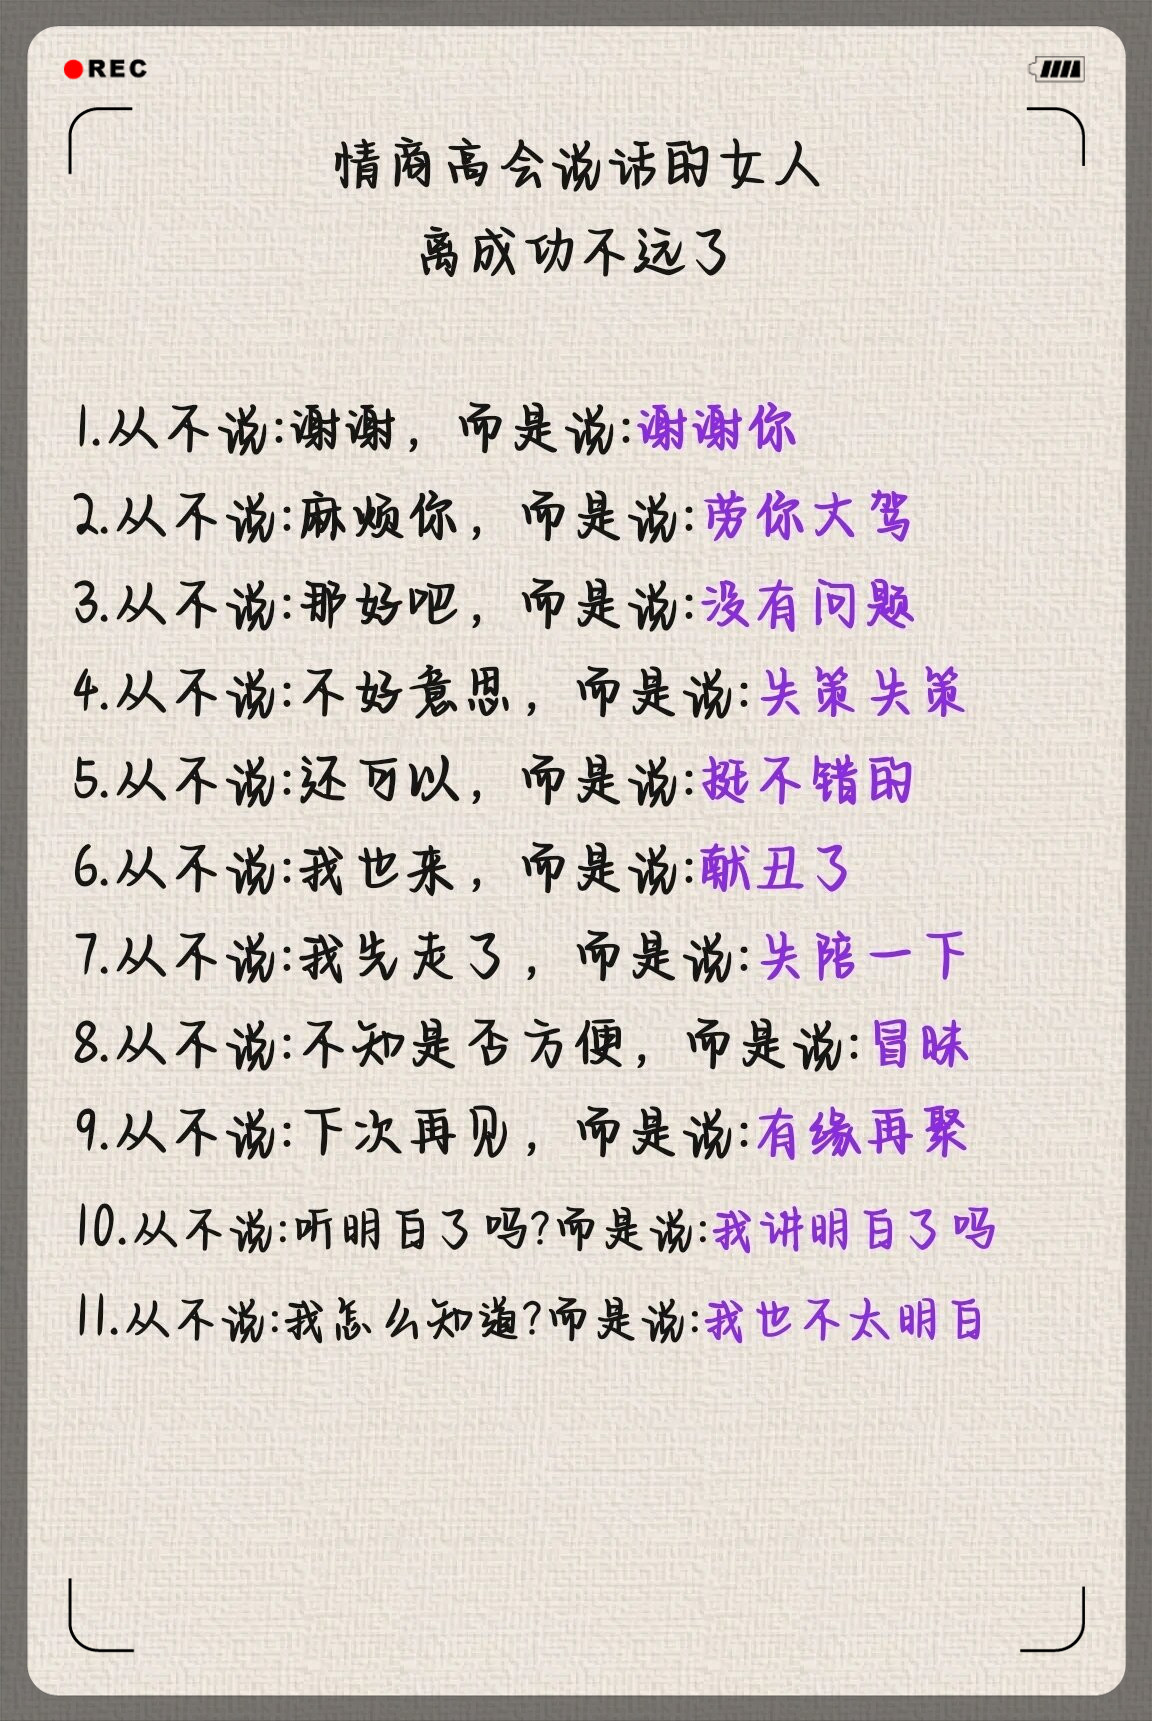 REC
情商高会说话的女人
离成功不远了
1.从不说:谢谢，而是说:谢谢你
2.从不说:麻烦你，而是说:劳你大驾
3.从不说:那好吧，而是说:没有问题
4.从不说:不好意思，而是说:失策失策
5.从不说:还可以，而是说:挺不错的
6.从不说:我也来，而是说:献丑了
7.从不说:我先走了，而是说:失陪一下
8.从不说:不知是否方便，而是说:冒昧
9.从不说:下次再见，而是说:有缘再聚
10.从不说:听明白了吗?而是说:我讲明白了吗
11.从不说:我怎么知道?而是说:我也不太明白